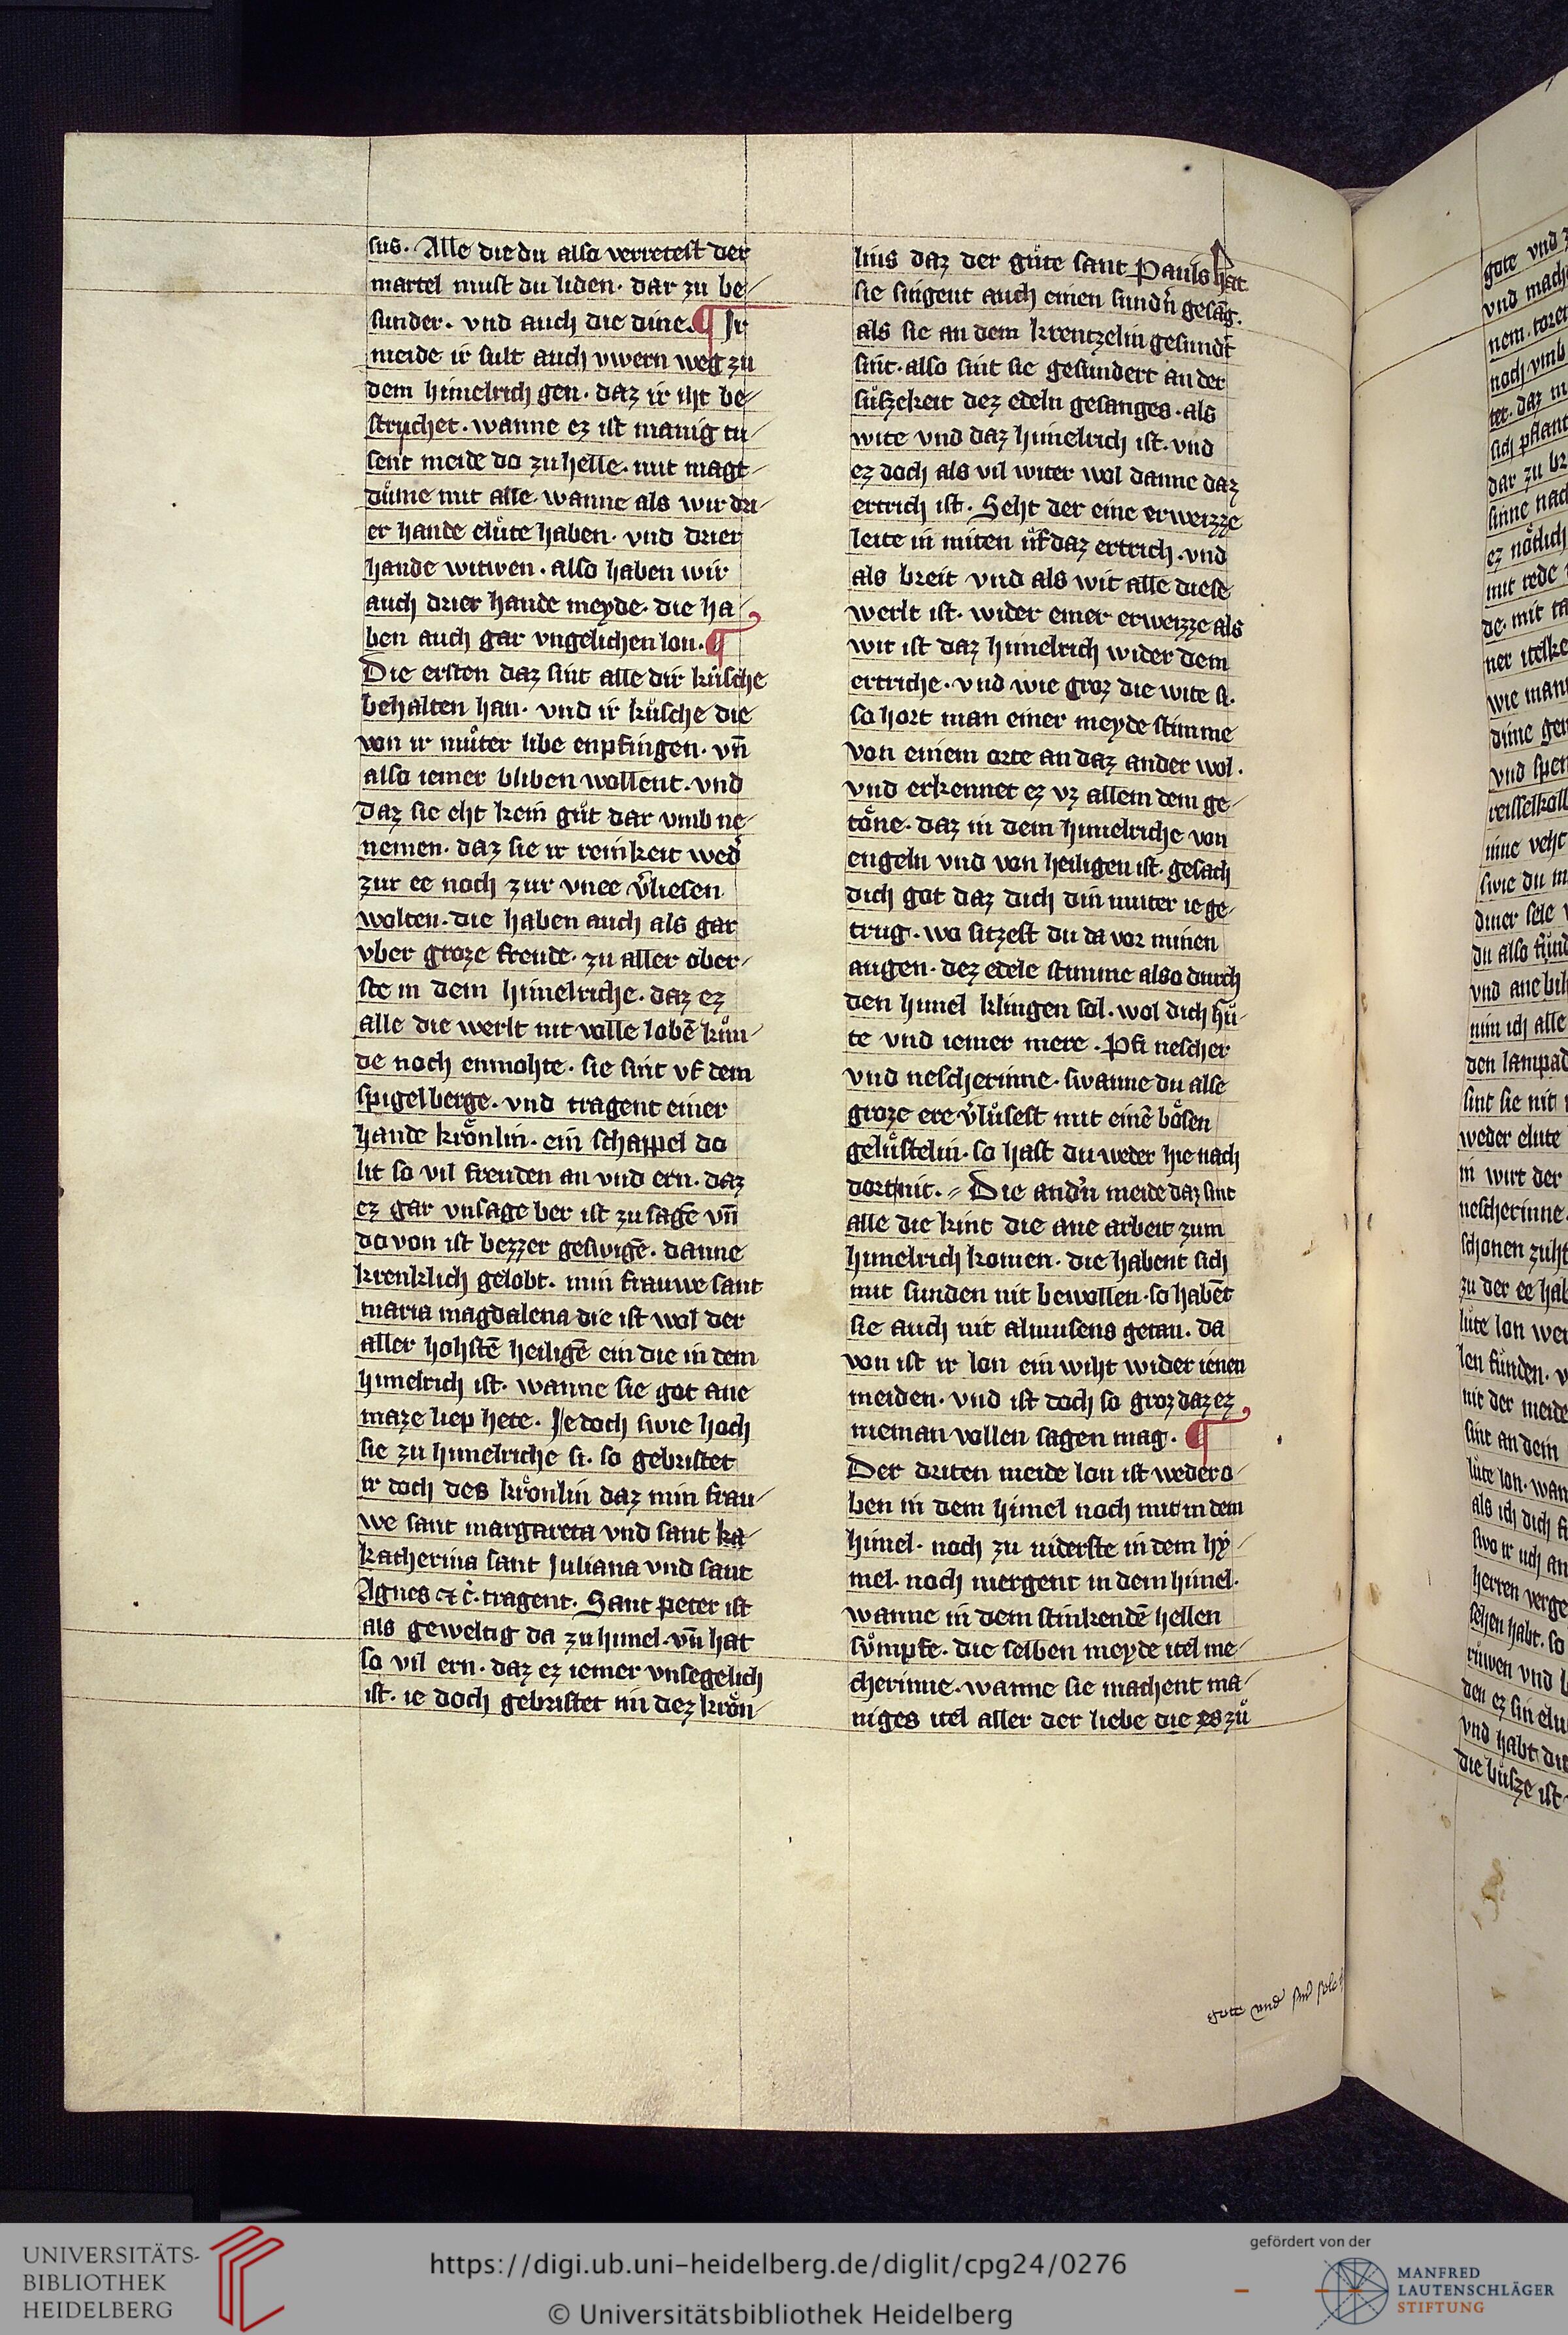 sus. Alle die du also verretest der
martel must du liden. dar zu be-
sunder. vnd auch die dine. ¶ Ir
meide ir sult auch vwern weg zu
dem himelrich gen. daz ir iht be-
struchet. wanne ez ist manig tu-
sent meide do zu helle. mit magt-
duͦme mit alle. wanne als wir dri-
er hande elute haben. vnd drier
hande witwen. also haben wir
auch drier hande meyde. die ha-
ben auch gar vngelichen lon. ¶
Die ersten daz sint alle dir kusche
behalten han. vnd ir kusche die
von ir muͦter libe enpfingen. vn̄
also iemer bliben wollent. vnd
daz sie eht kein guͦt dar vmb ne-
nemen. daz sie ir reinkeit wed̓
zur ee noch zur vnee v̓liesen
wolten. die haben auch als gar
vber groze freude. zu aller ober-
ste in dem himelriche. daz ez
alle die werlt nit volle lobē kuͦn-
de noch enmohte. sie sint vf dem
spigelberge. vnd tragent einer
hande kroͤnlin. ein schappel do
lit so vil freuden an vnd ern. daz
ez gar vnsage ber ist zu sagē vn̄
do von ist bezzer geswigē. danne
krenklich gelobt. min frauwe sant
maria magdalena die ist wol der
aller hohstē heiligē ein die in dem
himelrich ist. wanne sie got ane
maze liep hete. Iedoch swie hoch
sie zu himelriche si. so gebristet
ir doch des kroͤnlin daz min frau-
we sant margareta vnd sant ka-
katherina sant Iuliana vnd sant
Agnes et c̄. tragent. Sant peter ist
als geweltig da zu himel. vn̄ hat
so vil ern. daz ez iemer vnsegelich
ist. ie doch gebristet im dez kroͤn-
lins daz der guͦte sant Pauls hat
sie singent auch einen sundn̓ gesāg.
als sie an dem krentzelin gesundt̓
sint. also sint sie gesundert an der
suͤszekeit dez edeln gesanges. als
wite vnd daz himelrich ist. vnd
ez doch als vil witer wol danne daz
ertrich ist. Seht der eine erweizze
leite in miten uf daz ertrich. vnd
als breit vnd als wit alle diese
werlt ist. wider einer erweizze als
wit ist daz himelrich wider dem
ertriche. vnd wie groz die wite si.
so hort man einer meyde stimme
von einem orte an daz ander wol.
vnd erkennet ez vz allem dem ge-
toͤne. daz in dem himelriche von
engeln vnd von heiligen ist. gesach
dich got daz dich din muter ie ge-
trug. wo sitzest du da vor minen
augen. dez edele stimme also durch
den himel klingen sol. wol dich huͤ-
te vnd iemer mere. Pfi nescher
vnd nescherinne. swanne du alse
groze ere v̓luͤsest mit einē boͤsen
geluͤstelin. so hast du weder hie nach
dort nit. Die and̓n meide daz sint
alle die kint die ane arbeit zum
himelrich komen. die habent sich
mit sunden nit bewollen. so habēt
sie auch nit almusens getan. da
von ist ir lon ein wiht wider ienen
meiden. vnd ist doch so groz daz ez
nieman vollen sagen mag. ¶
Der driten meide lon ist weder o-
ben in dem himel noch mit in dem
himel. noch zu niderste in dem hy-
mel. noch niergent in dem himel.
wanne in dem stinkendē hellen
suͦmpfe. die selben meyde itel me-
cherinne. wanne sie machent ma-
niges itel aller der liebe die es zuͦ
gote vnd
UNIVERSITÄTS-
BIBLIOTHEK
HEIDELBERG
https://digi.ub.uni-heidelberg.de/diglit/cpg24/0276
© Universitätsbibliothek Heidelberg
gefördert von der
MANFRED
LAUTENSCHLÄGER
STIFTUNG